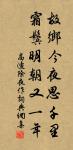 故鄉今夜思千里
霜鬢明朝又一年
高適除夜作詩興綱書